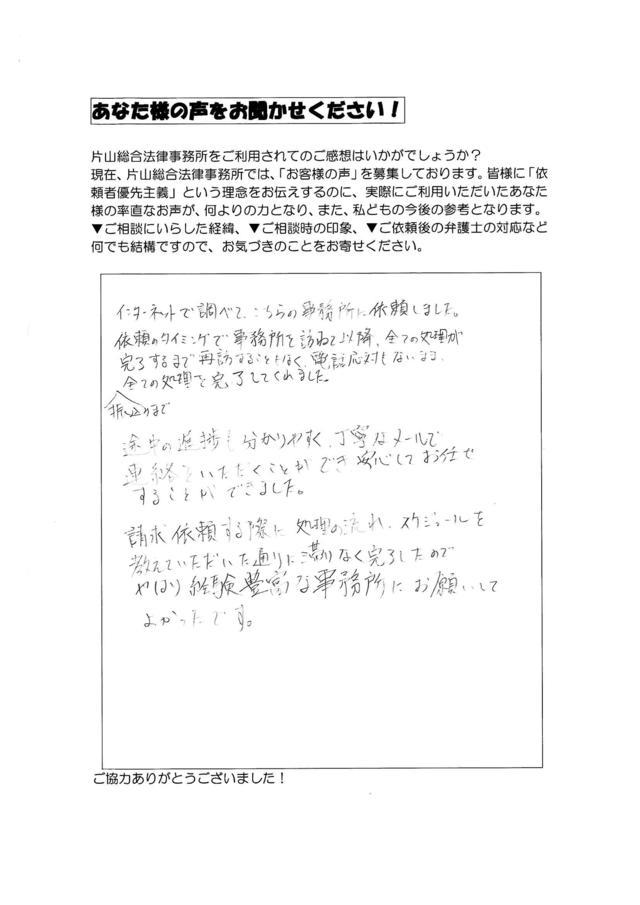 あなた様の声をお聞かせください！
片山総合法律事務所をご利用されてのご感想はいかがでしょうか？
現在、片山総合法律事務所では、「お客様の声」を募集しております。皆様に「依
頼者優先主義」という理念をお伝えするのに、実際にご利用いただいたあなた
様の率直なお声が、何よりの力となり、また、私どもの今後の参考となります。
▼ご相談にいらした経緯、▼ご相談時の印象、▼ご依頼後の弁護士の対応など
何でも結構ですので、お気づきのことをお寄せください。
インターネットで調べて、こちらの事務所に依頼しました。
依頼のタイミングで事務所を訪ねて以降、全ての処理が
完了するまで再訪することもなく、電話応対もないまま、
全ての処理を完了してくれました。
振込みまで
途中の進捗も分かりやすく、丁寧なメールで
連絡をいただくことができ安心してお任せ
することができました。
請求依頼する際に処理の流れ、スケジュールを
教えていただいた通りに滞りなく完了したので
やはり経験豊富な事務所にお願いして
よかったです。
ご協力ありがとうございました！